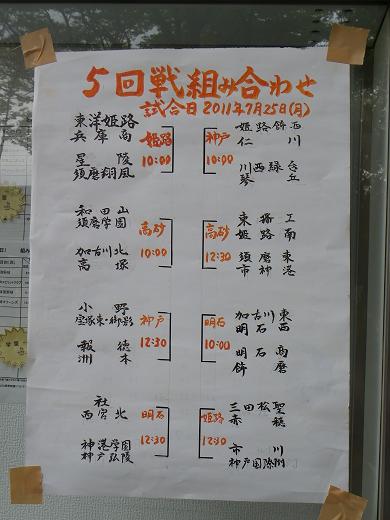 5回戦組み合わせ
試合日 2011年7月25日(月)
東洋姫路
兵庫商
姫路
10:00
星陵
須磨翔風
和田山
須磨学園
高砂
10:00
加古川北
高塚
小野
宝塚東・御影
神戸
12:30
報徳
洲本
社
西宮北
明石
12:30
神港学園
神戸弘陵
姫路飾西
仁川
神戸
10:00
川西緑台
琴丘
東播工
姫路南
高砂
12:30
須磨東
市神港
加古川西
明石西
明石
10:00
明石商
飾磨
三田松聖
赤穂
姫路
12:30
市川
神戸国際附